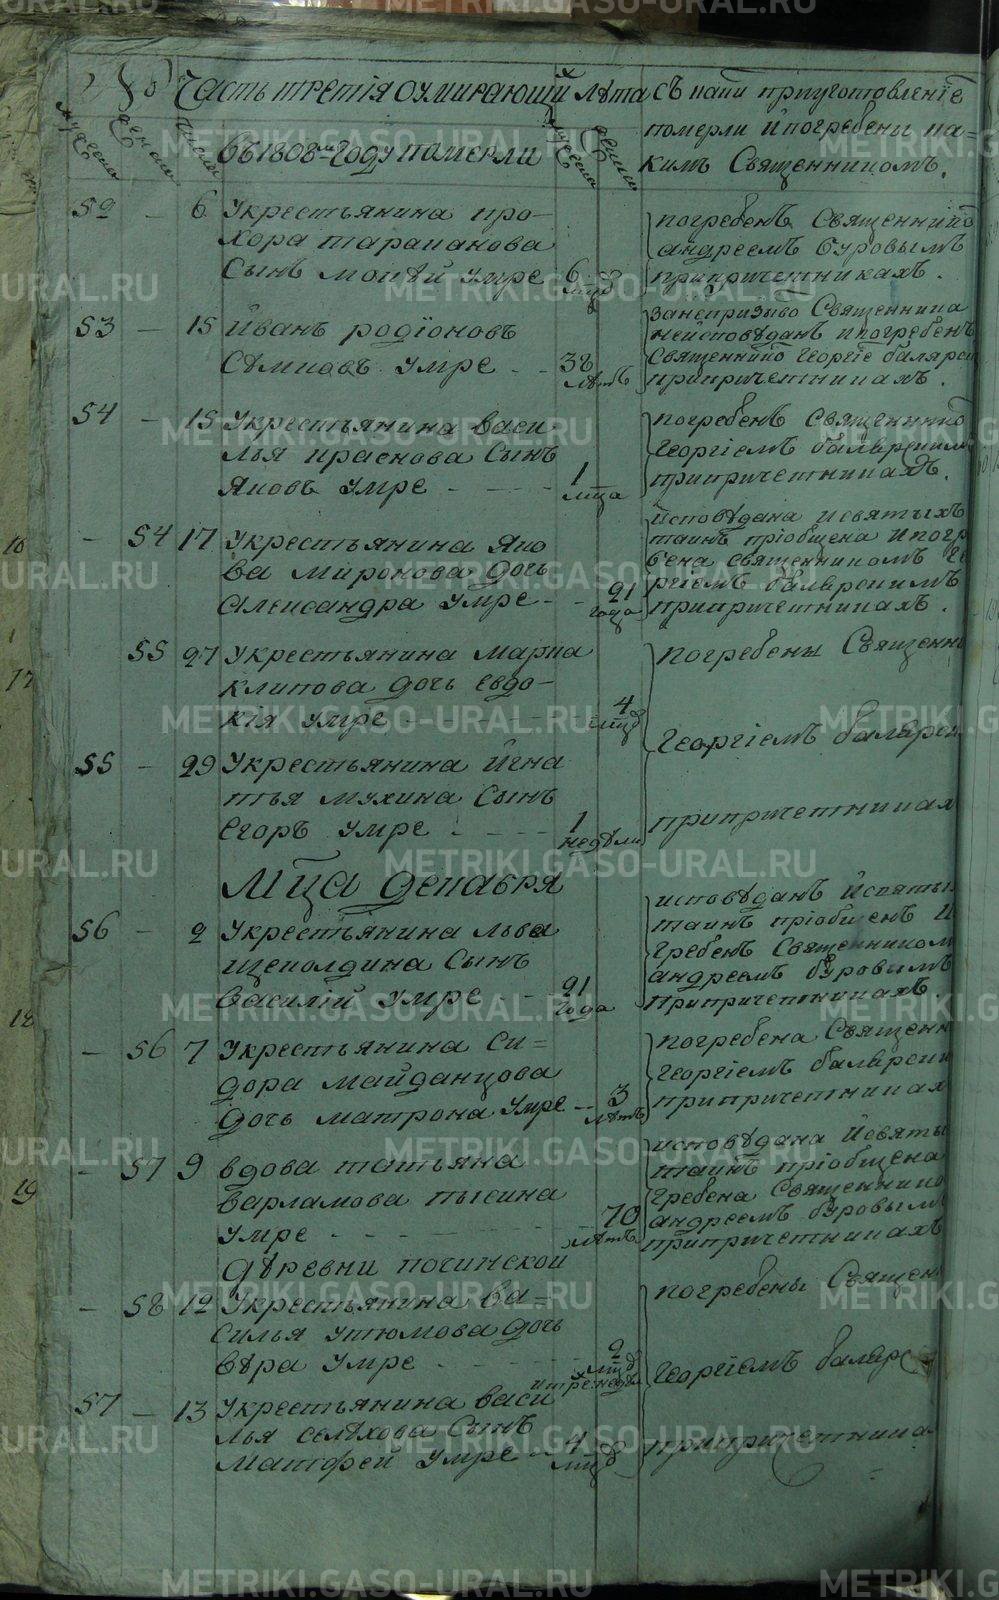 Часть третія о умирающихъ лѣта съ каки приуготовленіе
въ 1808мъ году померли
померли и погребены ка=
кимъ Священникомъ.
мужеска женска числа мужеска женска
52 - 6 У крестьянина про-
хора тараканова
сынъ мокѣй умре 6 мцъ
погребенъ Священнико
андреемъ буровымъ
при причетникахъ.
53 - 15 Иванъ родіоновъ
умре - - 38 лѣтъ
за неспризывъ Священника
не исповѣданъ и погребенъ
Священнико Георгіе балярси
при причетникахъ.
54 - 15 У крестьянина васи-
лья краснова сынъ
яковъ умре - - - - 1 мца
погребенъ Священнико
Георгіемъ балярскимъ
при причетникахъ.
- 54 17 У крестьянина яко
ва миронова дочь
александра умре - - 21 года
исповѣдана и святыхъ
таинъ пріобщена и погр
бена священникомъ ге
ргіемъ балярскимъ
при причетникахъ.
55 27 У крестьянина марка
клипова дочь евдо-
кія умре - - - - 4 мцъ
погребены Священни
55 - 29 У крестьянина Игна
тья мухина сынъ
Егоръ умре - - - - 1 недѣли
Георгіемъ балярск
при причетниках
Мца декабря
56 - 2 У крестьянина льва
щеколдина сынъ
василій умре - - 21 года
исповѣданъ и святы
таинъ пріобщенъ и
гребенъ Священником
андреемъ буровымъ
при причетникахъ.
- 56 7 У крестьянина си=
дора майданцова
дочь матрона умре - - 3 лѣтъ
погребена Священн
Георгіемъ балярски
при причетниках
- 57 9 вдова татьяна
варламова пысина
умре - - - - 70 лѣтъ
исповѣдана и святы
таинъ пріобщена
гребена Священнико
андреемъ буровымъ
при причетникахъ
дѣревни починской
- 58 12 У крестьянина ва=
силья утюмова дочь
вѣра умре - - - - 2 мцъ
погребены Священ
57 - 13 У крестьянина васи
лья селѣхова сынъ
матфей умре - - 4 мцъ
Георгіемъ балярс
при причетника